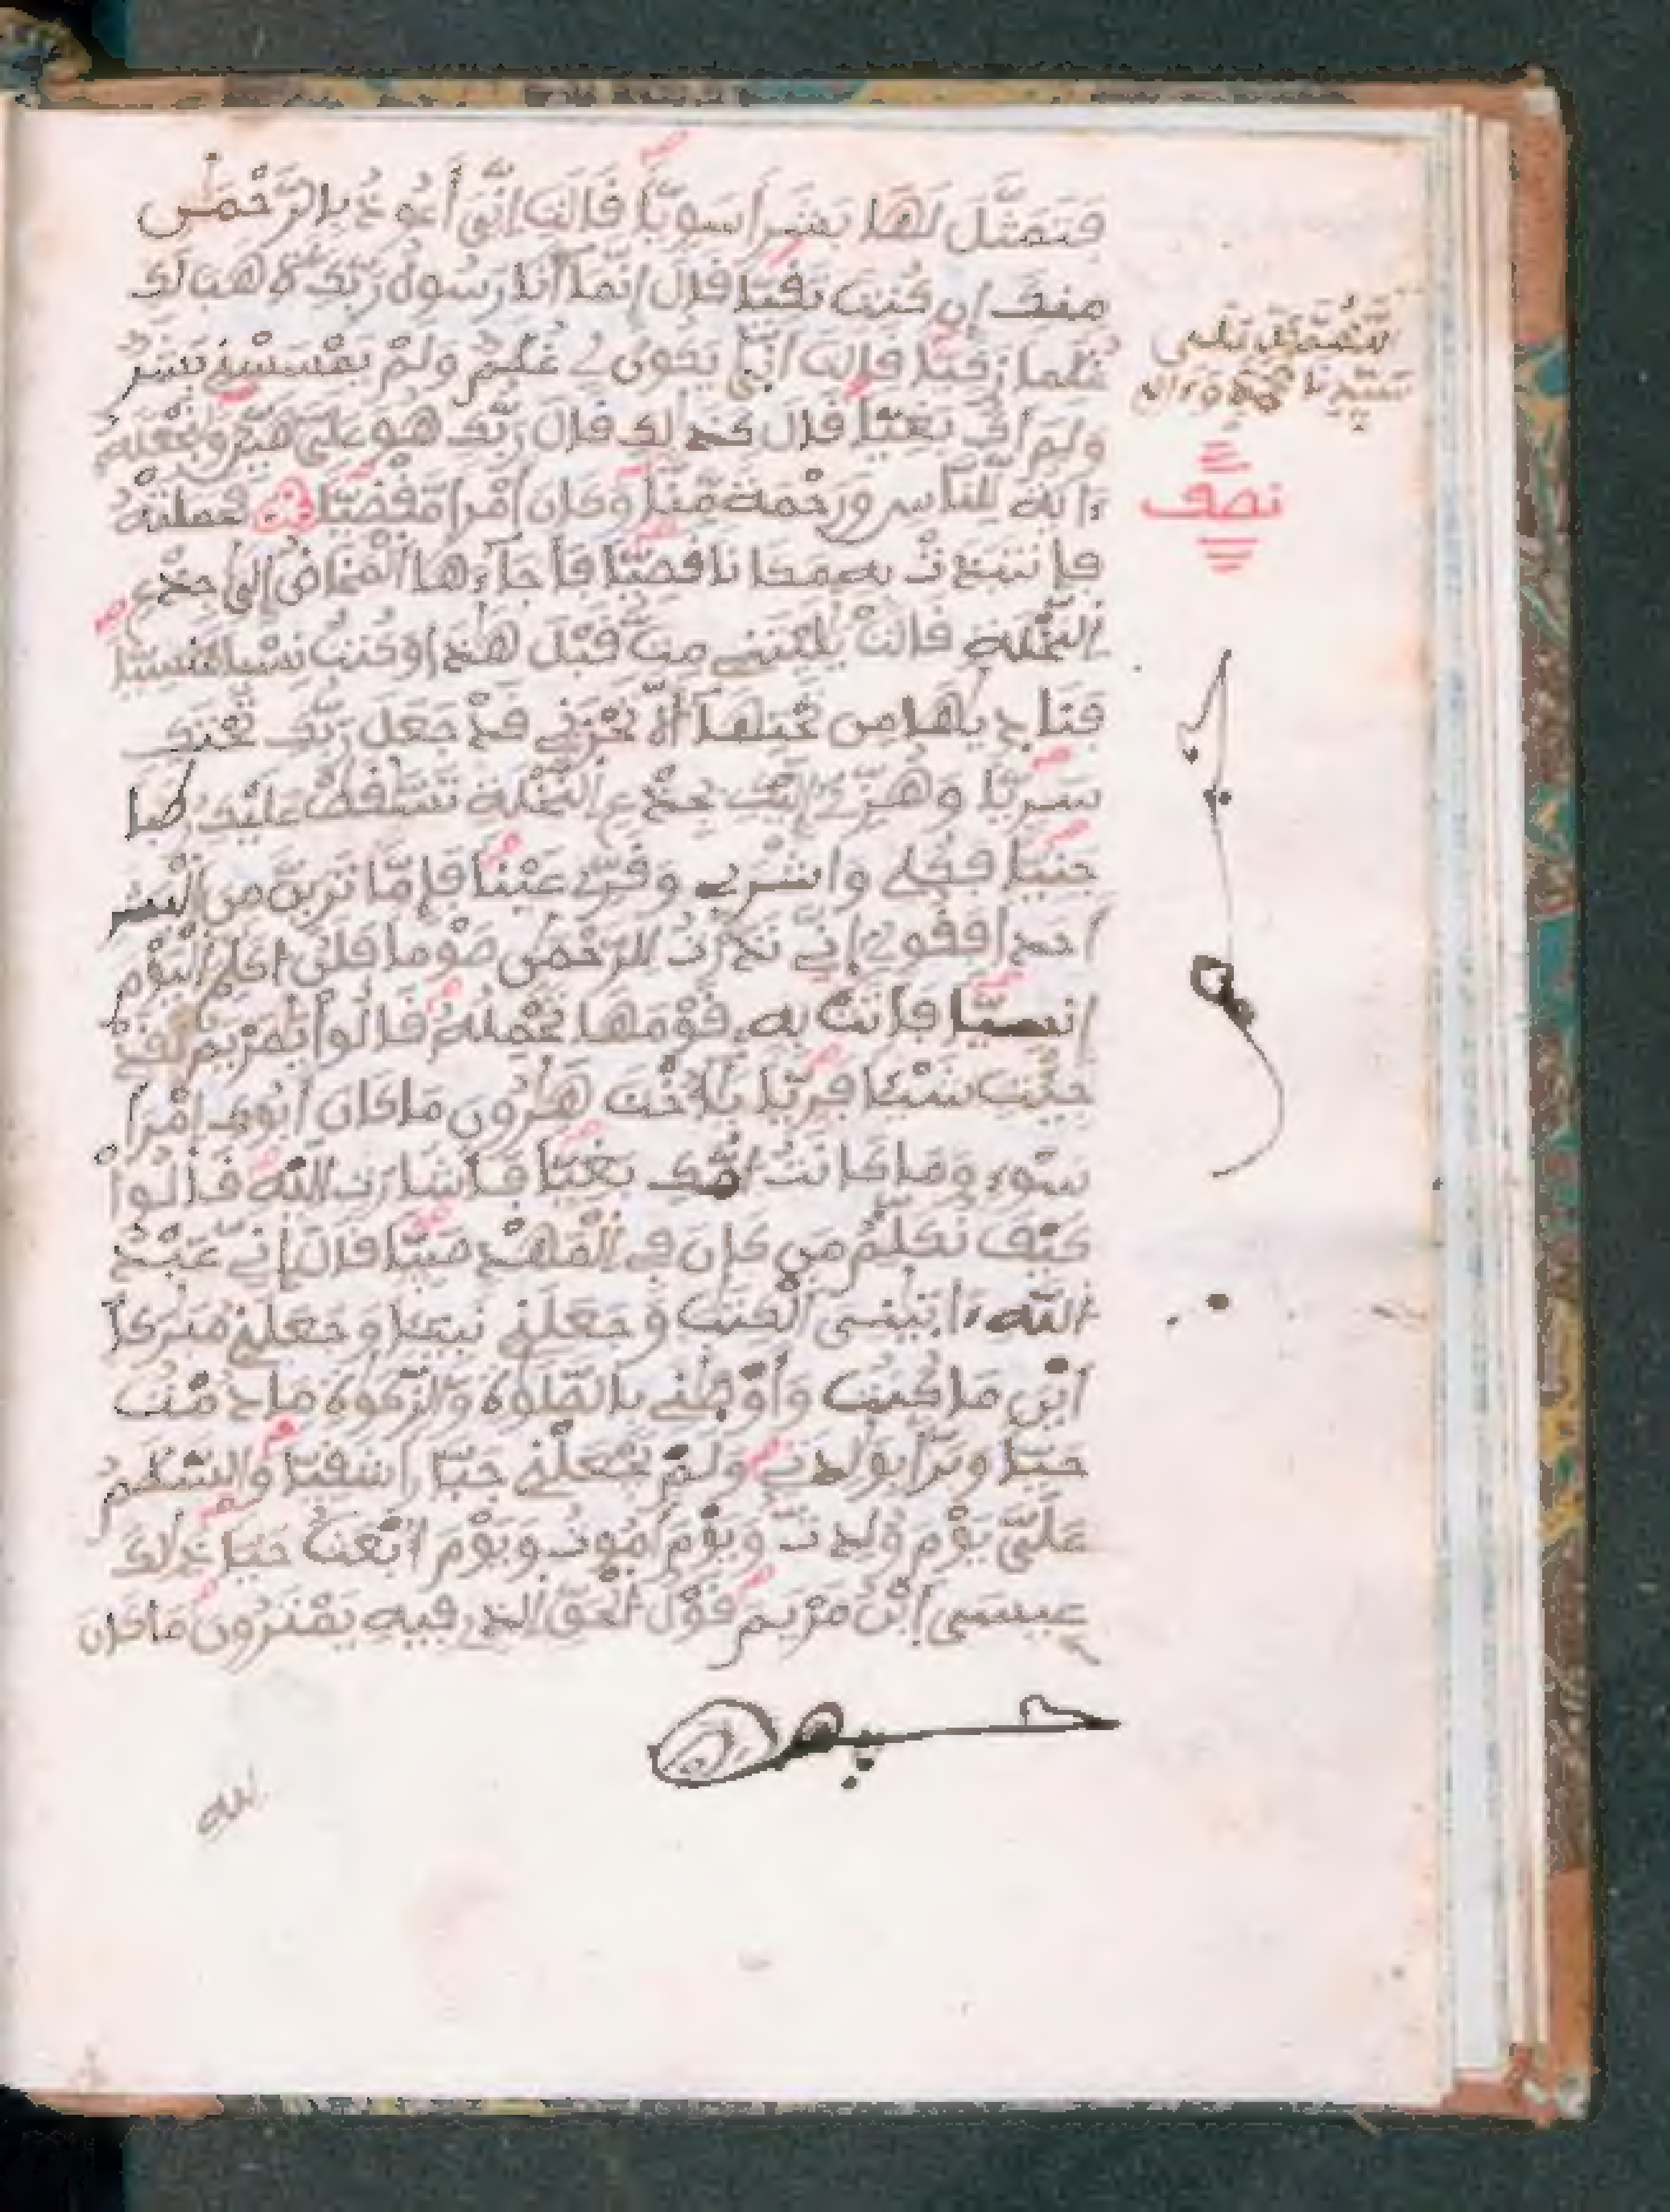 فتمثل لها بشرا سويا قالت إني أعوذ بالرحمن
منك إن كنت تقيا قال إنما أنا رسول ربك لاهب لك
غلما زكيا قالت أنى يكون لي غلم ولم يمسسني بشر
ولم أك بغيا قال كذلك قال ربك هو علي هين ولنجعله
ءاية للناس ورحمة منا وكان أمرا مقضيا فحملته
فانتبذت به مكانا قصيا فأجاءها المخاض إلى جذع
النخلة قالت يليتني مت قبل هذا وكنت نسيا منسيا
فناديها من تحتها ألا تحزني قد جعل ربك تحتك
سريا وهزي إليك بجذع النخلة تسقط عليك رطبا
جنيا فكلي واشربي وقري عينا فإما ترين من البشر
أحدا فقولي إني نذرت للرحمن صوما فلن أكلم اليوم
إنسيا فأتت به قومها تحمله قالوا يمريم لقد
جئت شيئا فريا يأخت هرون ما كان أبوك امرأ
سوء وما كانت أمك بغيا فأشارت إليه قالوا
كيف نكلم من كان في المهد صبيا قال إني عبد
الله ءاتيني الكتب وجعلني نبيئا وجعلني مبركا
أين ما كنت وأوصني بالصلوة والزكوة ما دمت
حيا وبرا بولدتي ولم يجعلني جبارا شقيا والسلم
علي يوم ولدت ويوم أموت ويوم أبعث حيا ذلك
عيسى ابن مريم قول الحق الذي فيه يمترون ما كان
نصف
حبس
لله